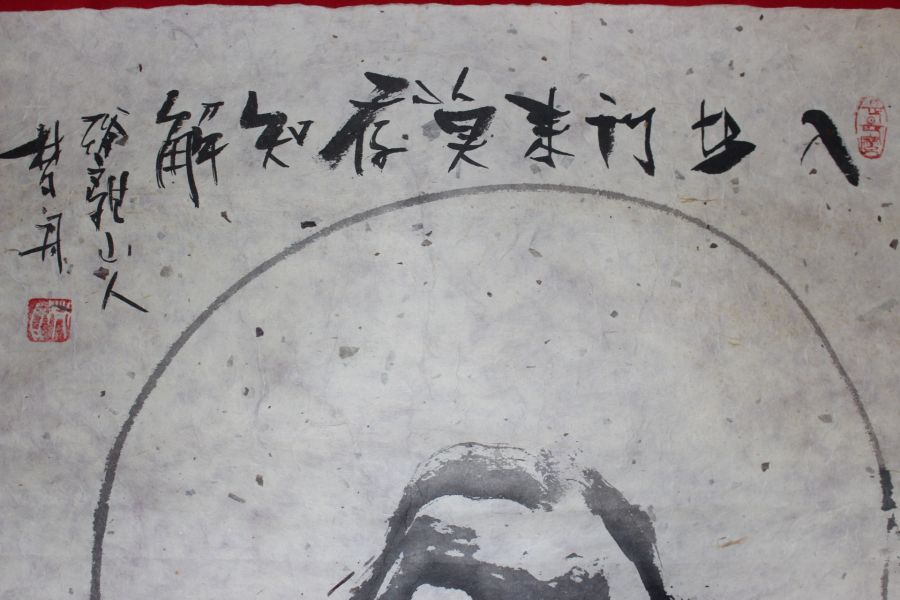 入此門來莫存知解
鷄龍山人